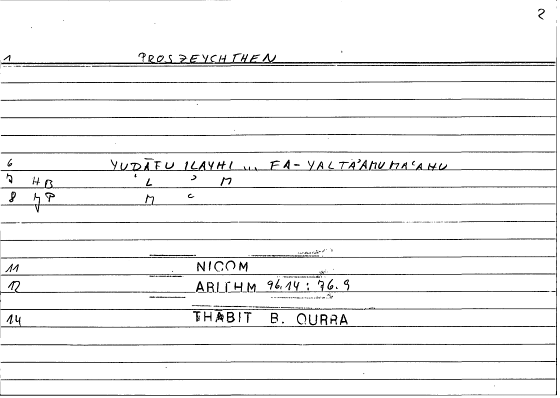 2
1 PROSZEYCHTHEN
6 YUDĀFU ILAYHI ... FA-YALTA'AMU MA'AHU
7 HB ʿ L ʾ M
8 M ʿ
11 NICOM
12 ARITHM 96.14 : 76.9
14 THĀBIT B. QURRA